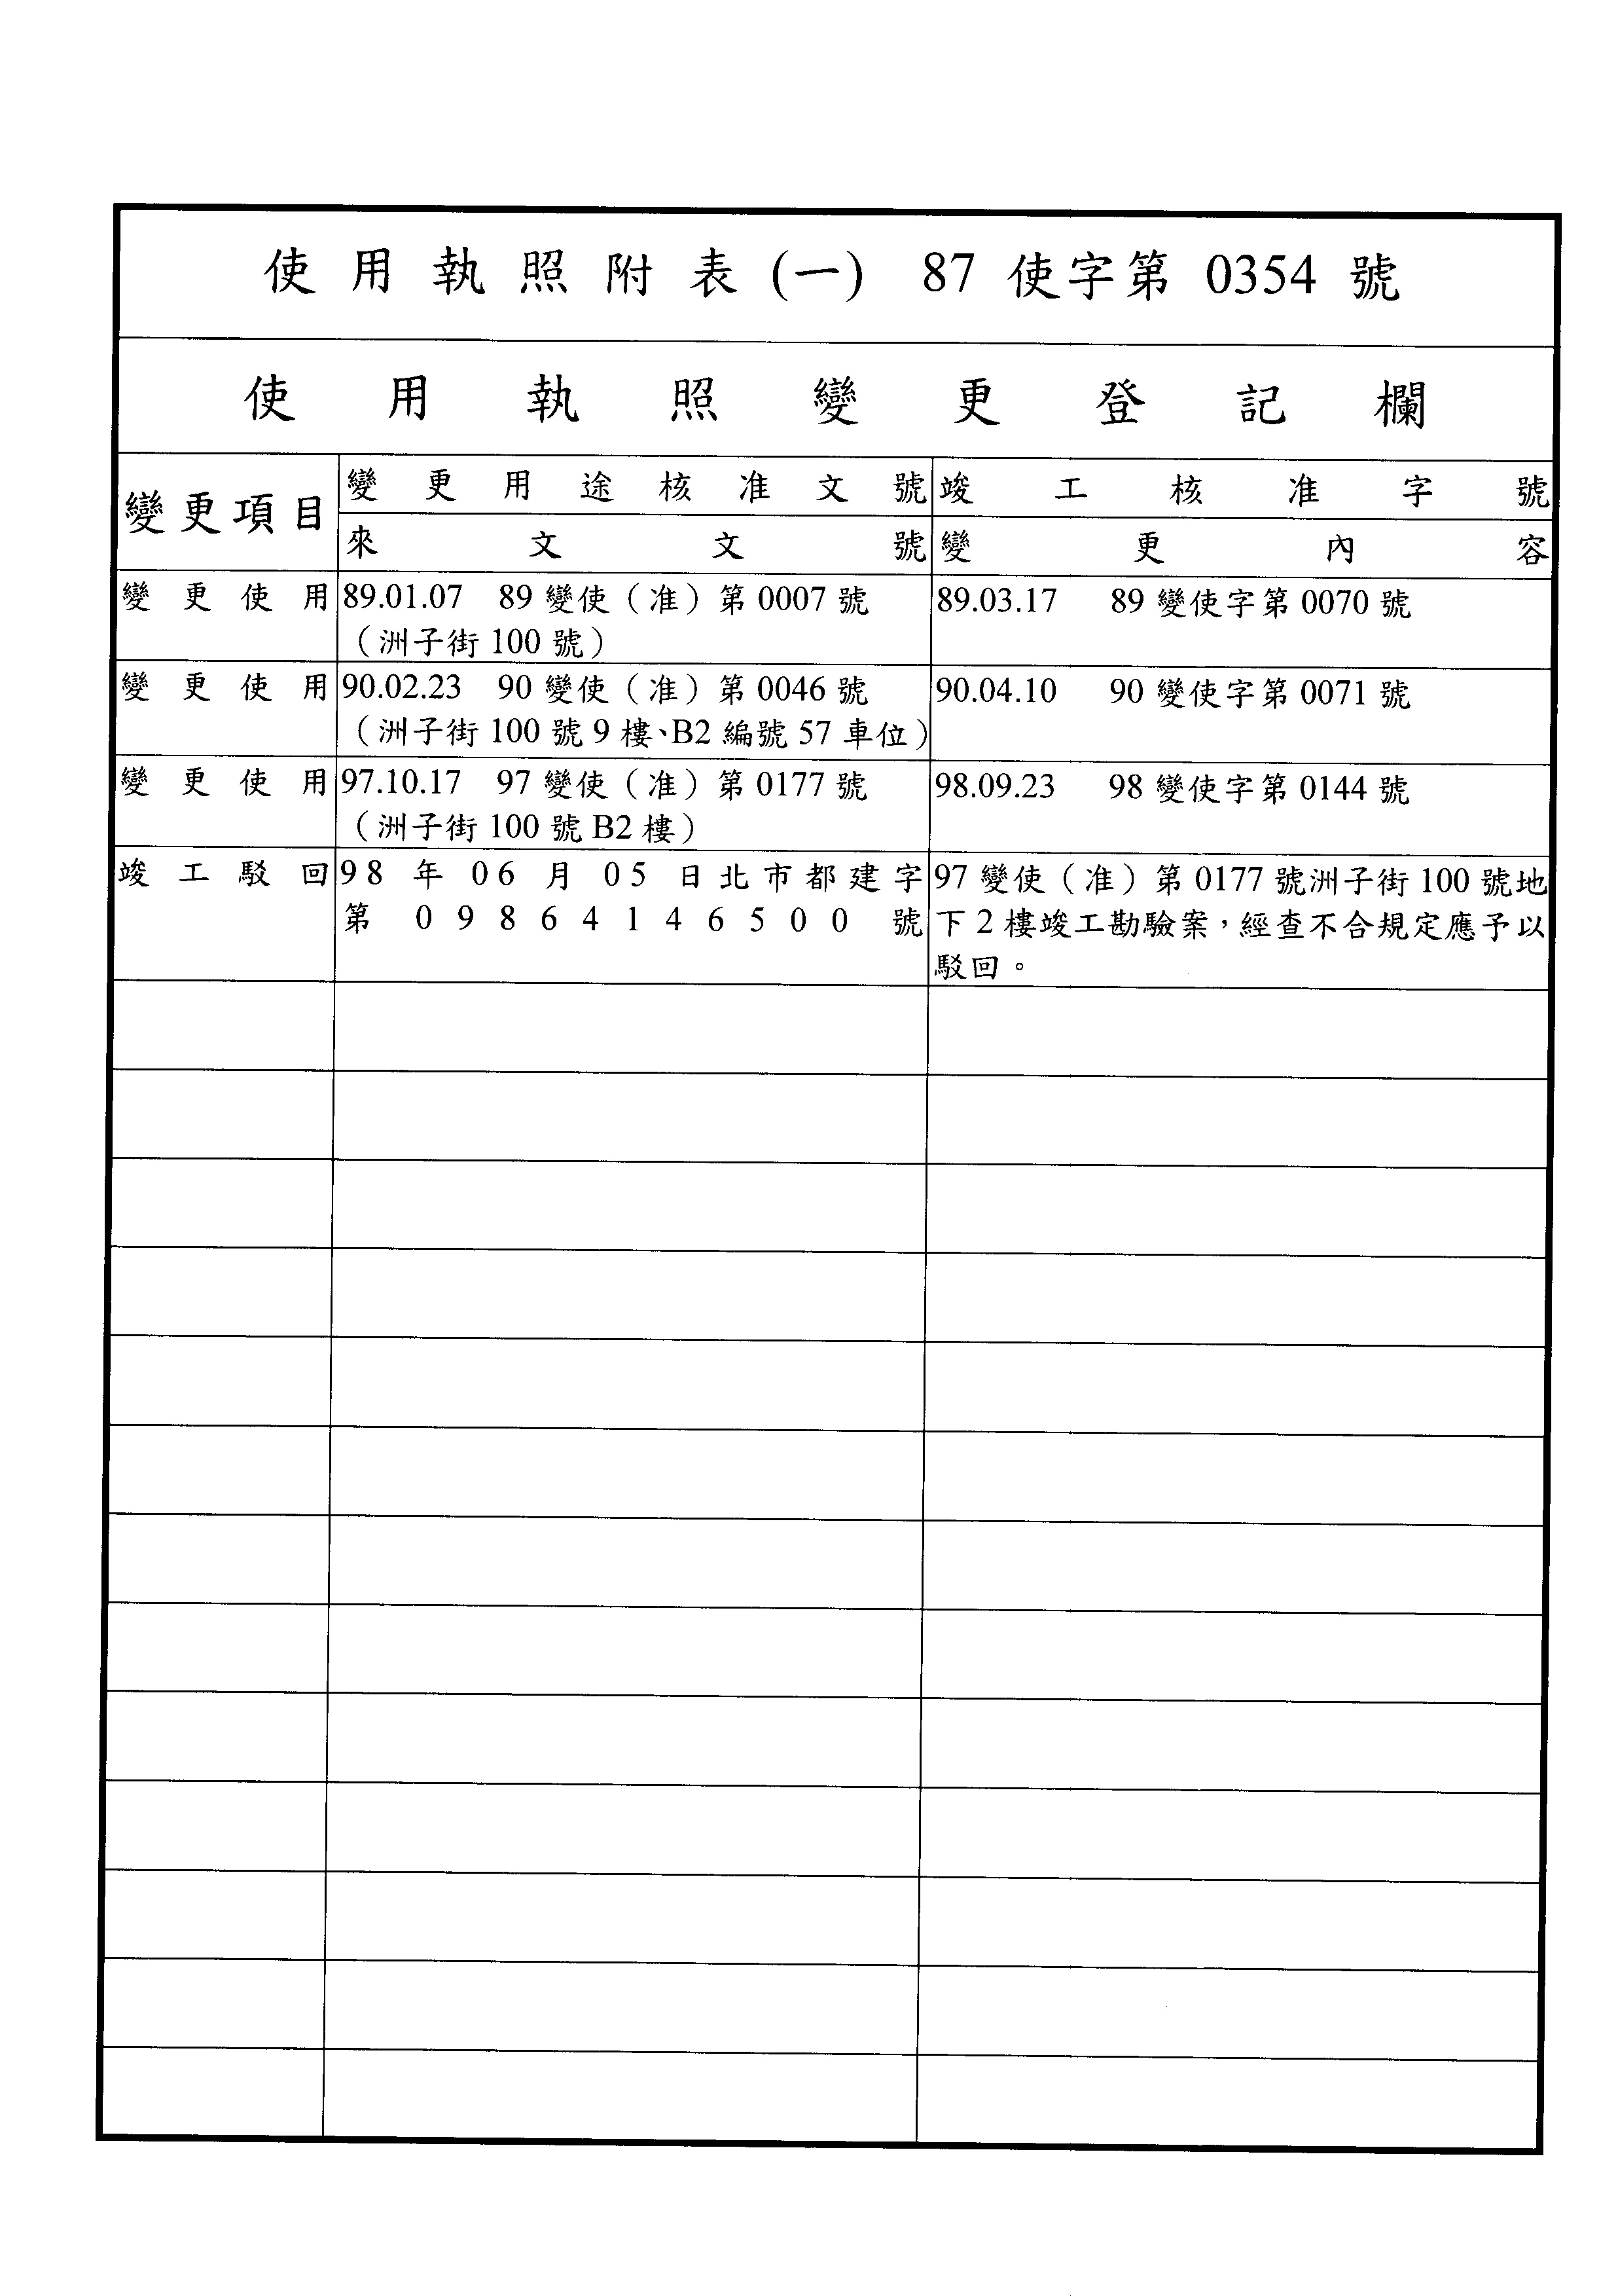 使用執照附表(一) 87 使字第 0354 號
使用執照變更登記欄
變更項目
變更用途核准文號
竣工核准字號
來文文號
變更內容
變更使用
89.01.07 89 變使（准）第 0007 號
（洲子街 100 號）
89.03.17 89 變使字第 0070 號
變更使用
90.02.23 90 變使（准）第 0046 號
（洲子街 100 號 9 樓、B2 編號 57 車位）
90.04.10 90 變使字第 0071 號
變更使用
97.10.17 97 變使（准）第 0177 號
（洲子街 100 號 B2 樓）
98.09.23 98 變使字第 0144 號
竣工駁回
98 年 06 月 05 日北市都建字
第 09864146500 號
97 變使（准）第 0177 號洲子街 100 號地
下 2 樓竣工勘驗案，經查不合規定應予以
駁回。